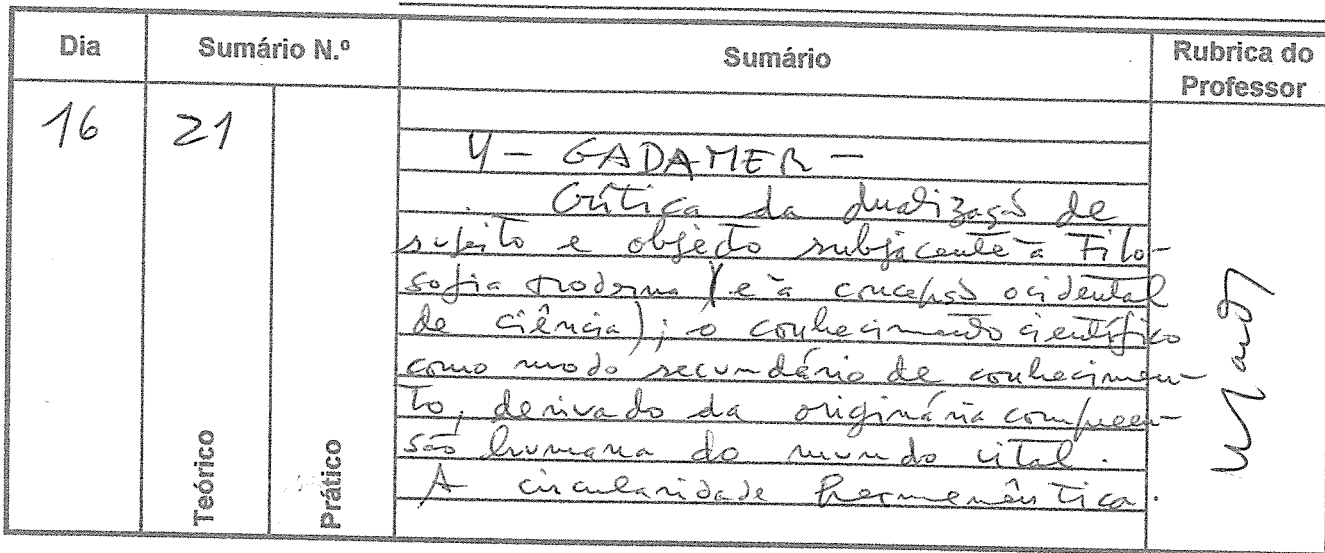 Dia
Sumário N.º
Sumário
Rubrica do
Professor
16
21
Teórico
Prático
4 - GADAMER -
Crítica da dualização de
sujeito e objecto subjacente à Filo-
sofia moderna (e à concepção ocidental
de ciência); o conhecimento científico
como modo secundário de conhecimen-
to, derivado da originária compreen-
são humana do mundo vital.
A circularidade hermenêutica.